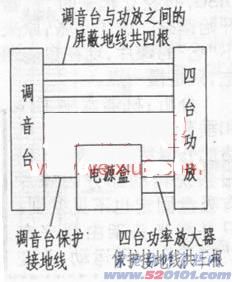 调音台与功放之间的
屏蔽地线共四根
调音台
四台功放
电源盒
调音台保护
接地线
四台功率放大器
保护接地线共三根
www.520101.com